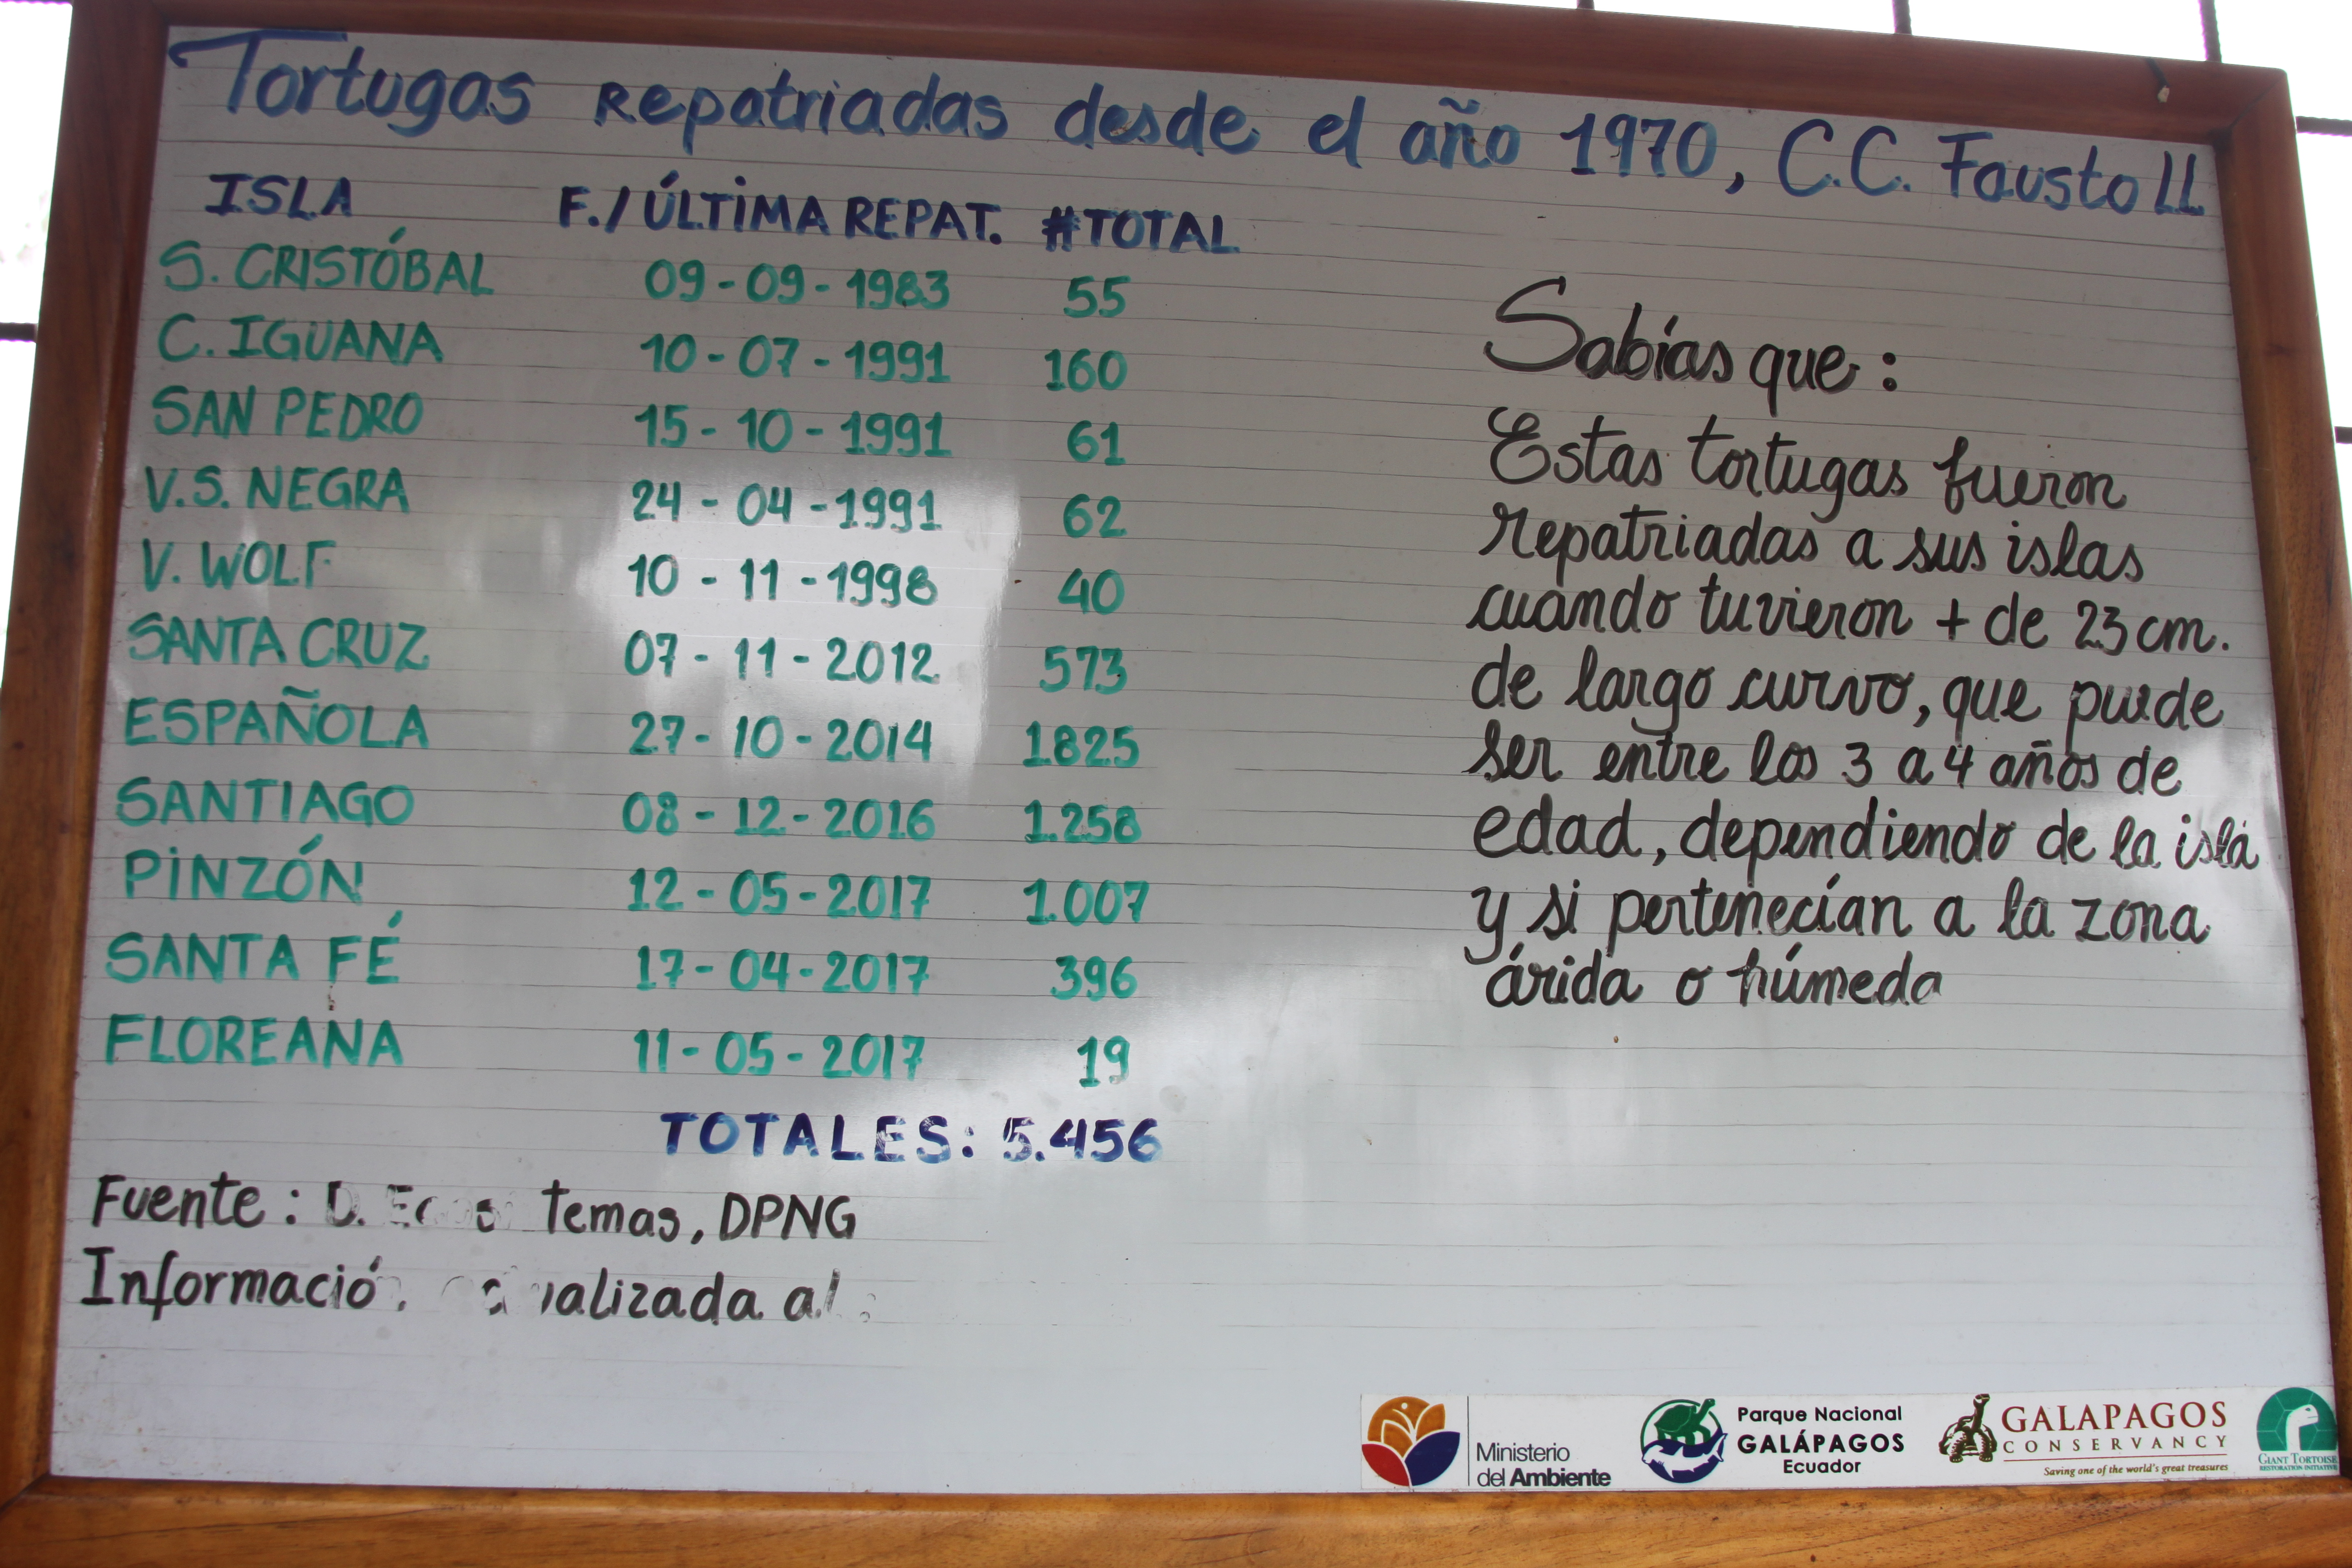 Tortugas Repatriadas desde el año 1970, C.C. Fausto Ll
ISLA F./ÚLTIMA REPAT. #TOTAL
S. CRISTÓBAL 09-09-1983 55
C. IGUANA 10-07-1991 160
SAN PEDRO 15-10-1991 61
V.S. NEGRA 24-04-1991 62
V. WOLF 10-11-1998 40
SANTA CRUZ 07-11-2012 573
ESPAÑOLA 27-10-2014 1825
SANTIAGO 08-12-2016 1.258
PINZÓN 12-05-2017 1.007
SANTA FÉ 17-04-2017 396
FLOREANA 11-05-2017 19
TOTALES: 5.456
Fuente: D. temas, DPNG
Informació alizada al:
Sabías que:
Estas tortugas fueron
repatriadas a sus islas
cuando tuvieron + de 23 cm.
de largo curvo, que puede
ser entre los 3 a 4 años de
edad, dependiendo de la isla
y si pertenecían a la zona
árida o húmeda
Ministerio
del Ambiente
Parque Nacional
GALÁPAGOS
Ecuador
GALAPAGOS
CONSERVANCY
Saving one of the world's great treasures
GIANT TORTOISE
RESTORATION INITIATIVE